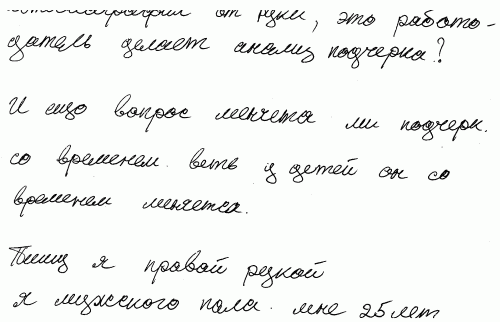 от руки, это работо-
датель делает анализ подчерка?
И ещо вопрос менчета ли подчерк.
со временем. веть у детей он со
временем меняетса.
Пишу я правой рукой
я мужского пола. мне 25 лет